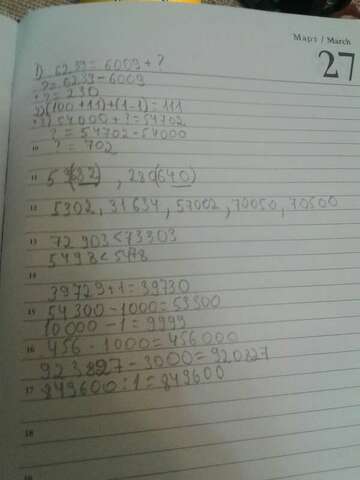 Март / March
27
1) 6239 = 6009 + ?
? = 6239 - 6009
? = 230
2) (100 + 11) + (1 - 1) = 111
3) 54000 + ? = 54702
? = 54702 - 54000
10 ? = 702
11 , 280(640)
12 5302, 31634, 57002, 70050, 70500
13 72 903 < 73303
5498 <
14
39729 + 1 = 39730
15 54 300 - 1000 = 53300
10 000 - 1 = 9999
16 456 · 1000 = 456 000
923827 - 3000 = 920827
17 849600 : 1 = 849600
18